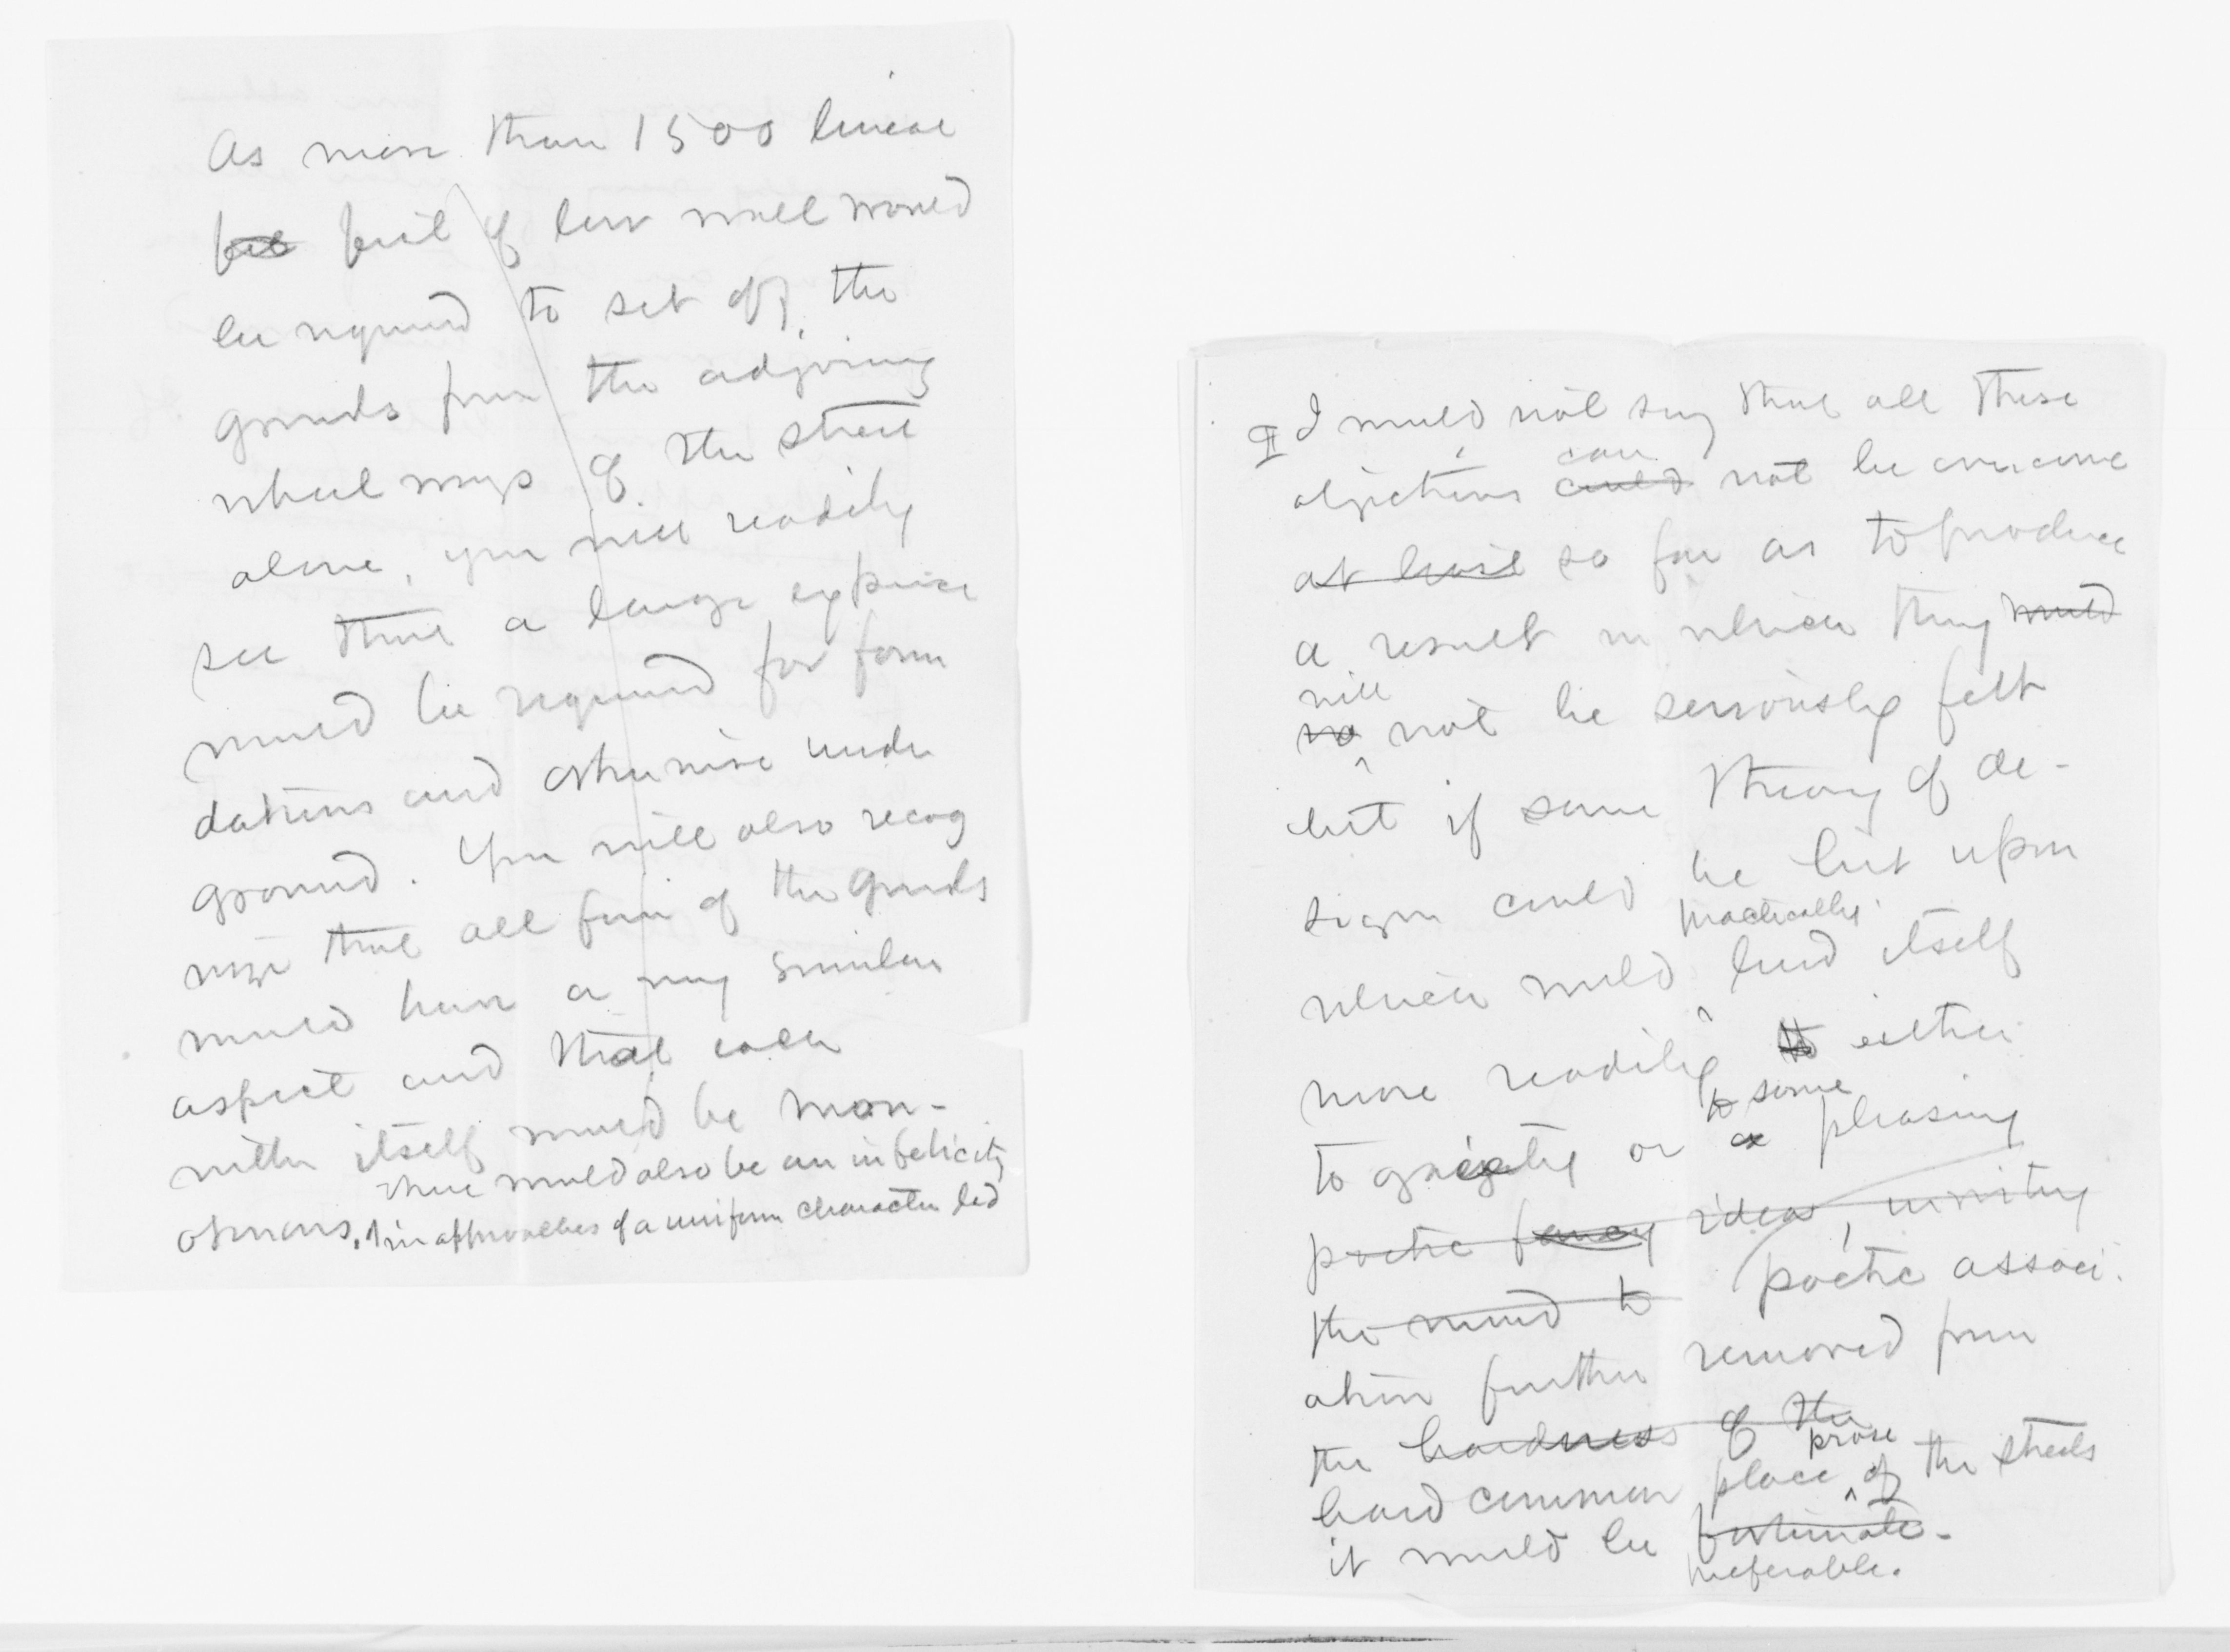 As more than 1500 linear
fee feet of low wall would
be required to set off, the
grounds from the adjoining
wheel ways of the street
alone, you will readily
see that a large expense
would be required for foun
dations and otherwise under
ground. You will also recog
nize that all four of the grounds
would have a very similar
aspect and that each
within itself would be mon-
There would also be an infelicity
otonous. in approaches of a uniform character led
I would not say that all these
can
objections could not be overcome
at least so far as to produce
a result in which they would
will
no not be seriously felt
but if some theory of de-
sign could be hit upon
practically
which would lend itself
more readily to either
to some
to gaiety or a pleasing
poetic fancy ideas, inviting
the mind to poetic associ
ation further removed from
the hardness of the
prose
hard common place of the streets
it would be fortunate.
preferable.